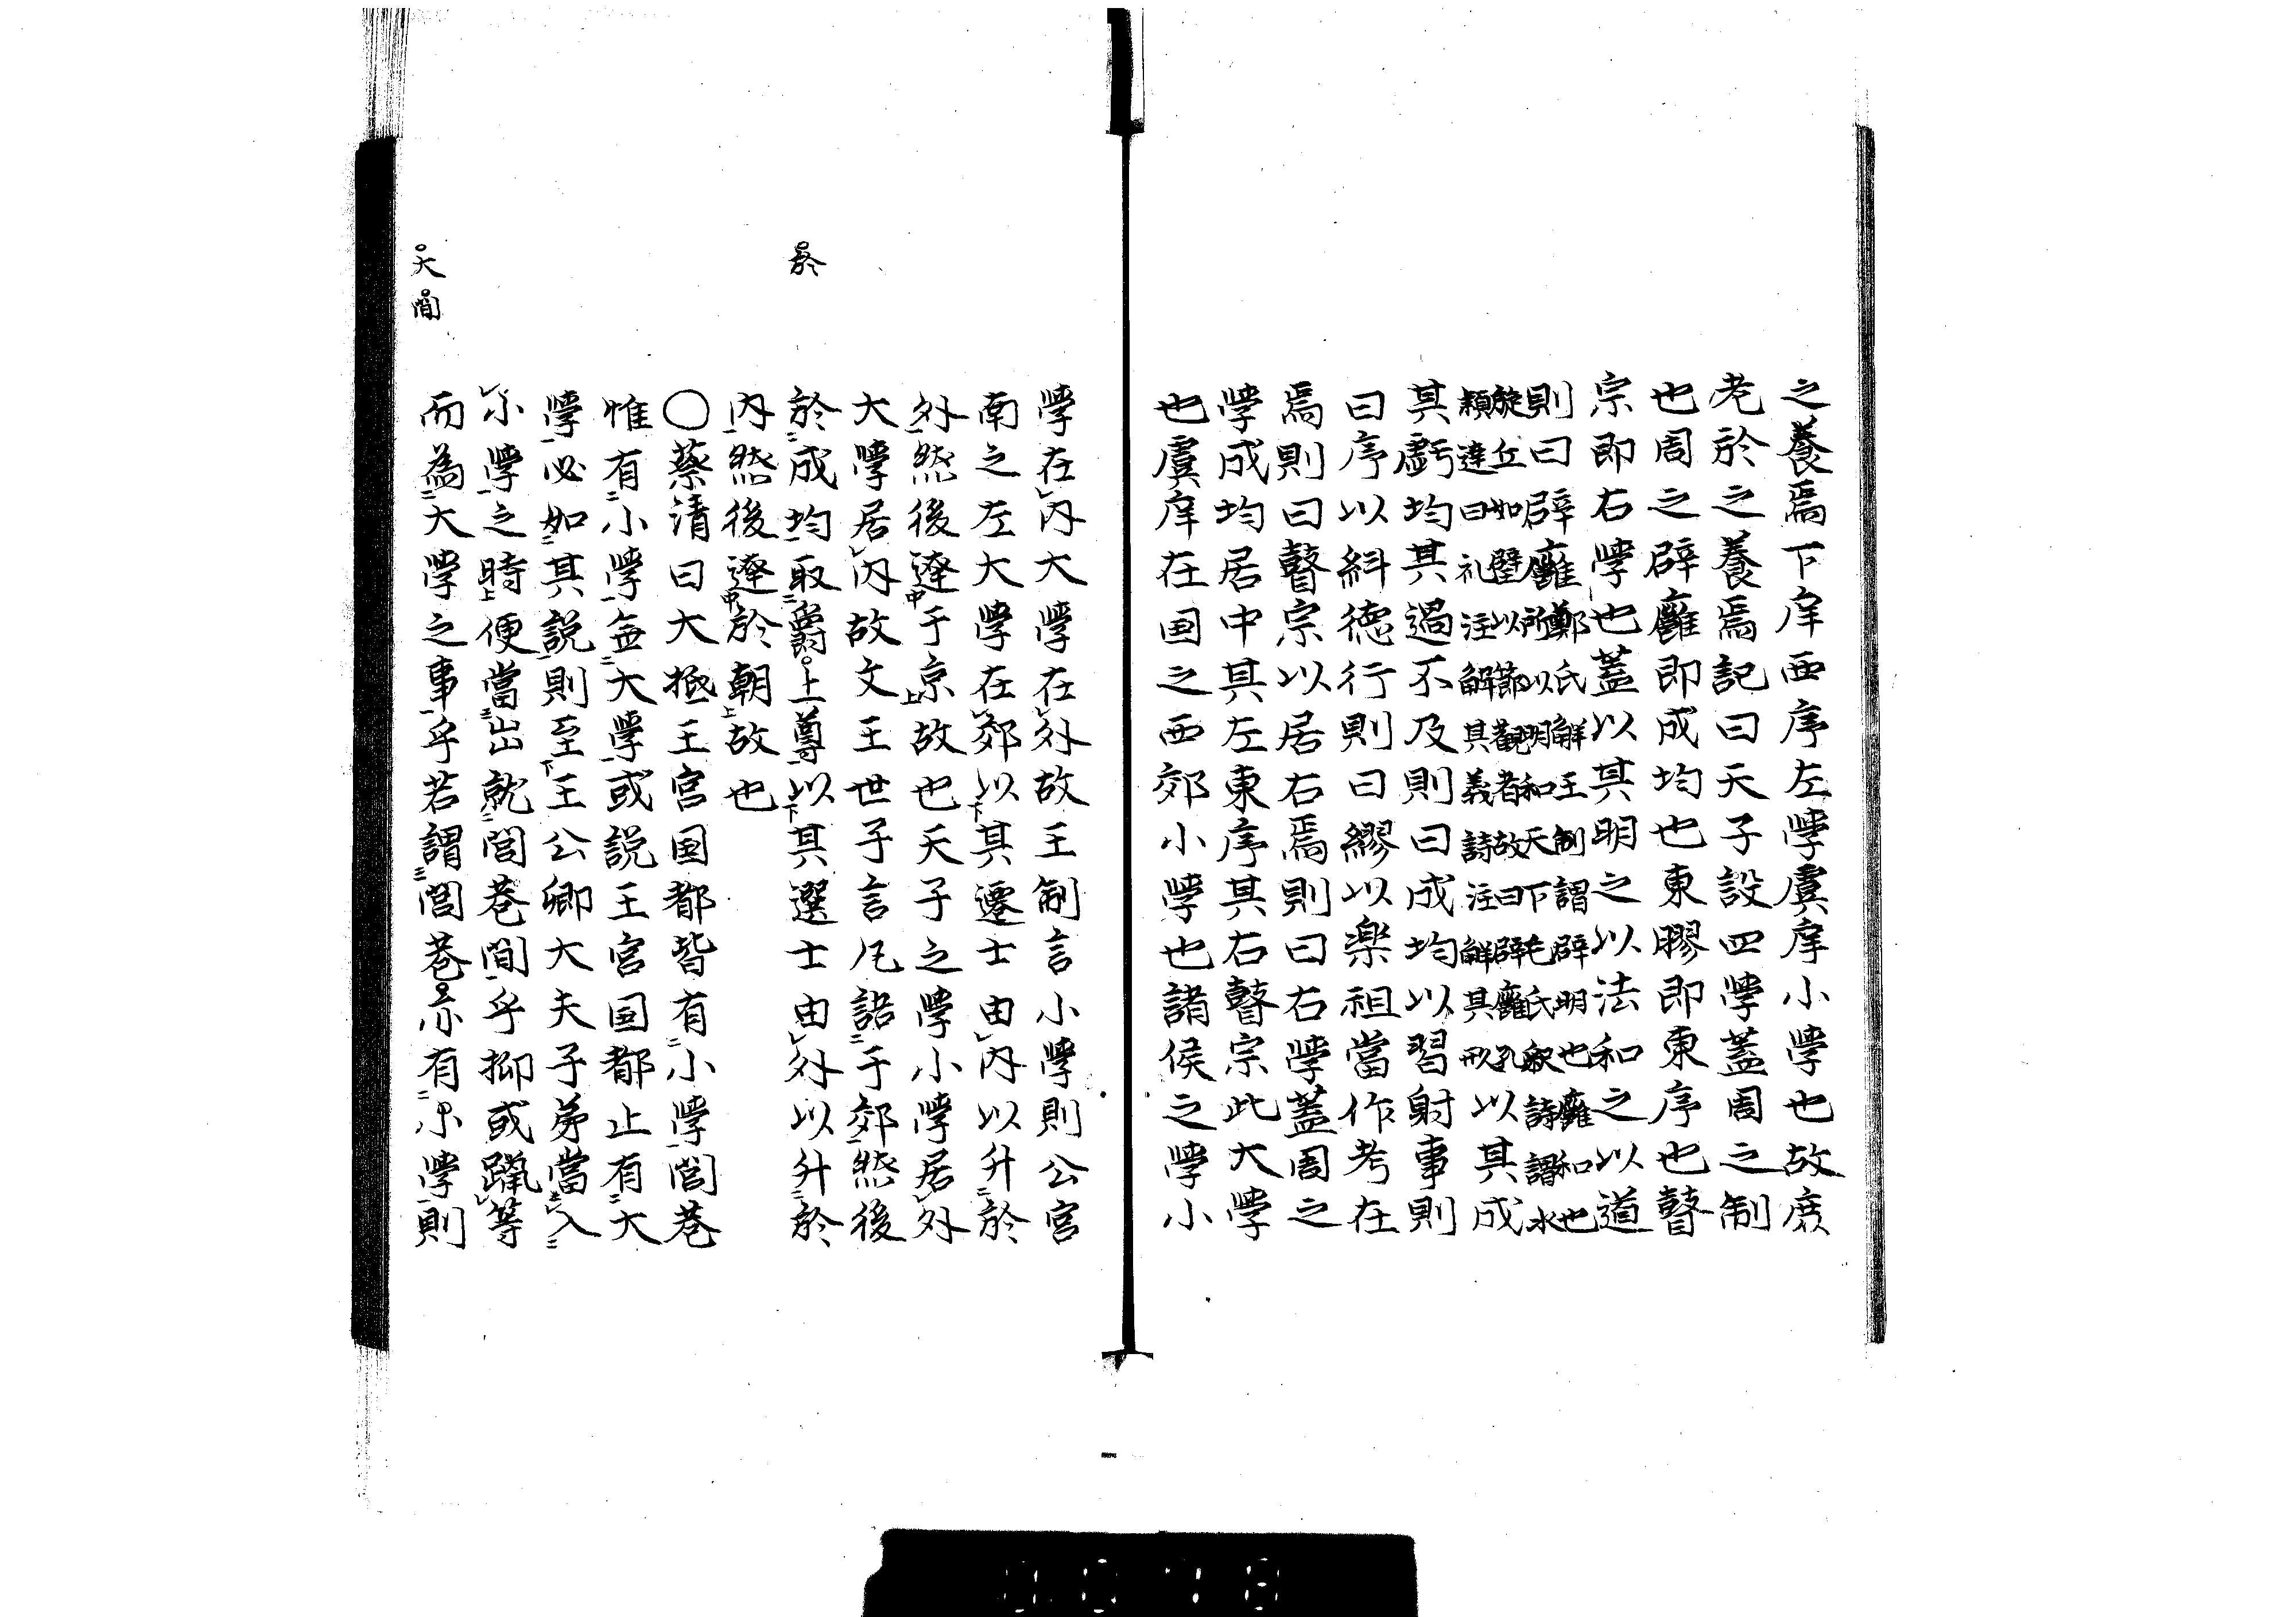 之養焉下庠西序左學虞庠小學也故庶
老於之養焉記曰天子設四學蓋周之制
也周之辟廱即成均也東膠即東序也瞽
宗即右學也蓋以其明之以法和之以道
則曰辟廱鄭氏解王制謂辟明也廱和也
所以明和天下毛氏釈詩謂水
旋丘如璧以節觀者故曰辟廱孔
頴達曰礼注解其義詩注解其形以其成
其虧均其過不及則曰成均以習射事則
曰序以糾德行則曰繆以楽祖當作考在
焉則曰瞽宗以居右焉則曰右學蓋周之
學成均居中其左東序其右瞽宗此大學
也虞庠在国之西郊小學也諸侯之學小
學在内大學在外故王制言小學則公宮
南之左大學在郊以其遷士由内以升於
外然後達于京故也天子之學小學居外
大學居内故文王世子言凡語于郊然後
於
於成均取爵上尊以其選士由外以升於
内然後達於朝故也
〇蔡清曰大抵王宮国都皆有小學閭巷
惟有小學無大學或説王宮国都止有大
學必如其説則至王公卿大夫子弟當入
小學之時便當出就閭巷間乎抑或躐等
間
而為大學之事乎若謂閭巷亦有小學則